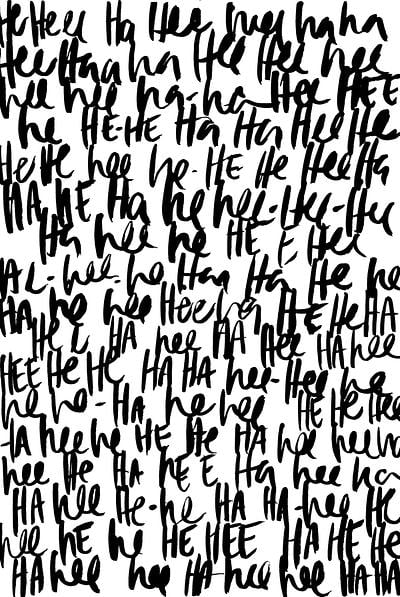 HeHee Ha Hee hee haha
HeeHaa ha Hee Hee hee
hee hee ha-ha Hee HEE
he HE-HE Ha Ha HeeHe
HeHE hee he-HE He HeeHa
HA HE Ha he hee-Hee-Hee
Ha hee he HE Hee
hee-he Haa Ha He he
HA he hee Heeha HE HeHA
He HA hee HA Hee HAhee
HEE He He HA HA hee-Hee he
he he-HA he hee HE He Hee
HA heehe HE He HA he hee
hee He HA HE E Ha hee ha
HA hee He-he HA HA-hee HE
hee hE he HE HEE HA HE He
HAhee hee HA-hee hee HAHA